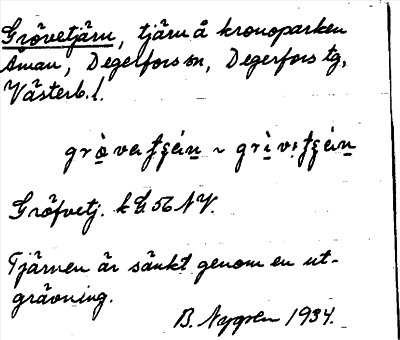 Grövetjärn, tjärn å kronoparken
Åman, Degerfors sn, Degerfors tg,
Västerb. l.
Gröfvetj. kG 56 NV.
Tjärnen är sänkt genom en ut-
grävning.
B. Nygren 1934.